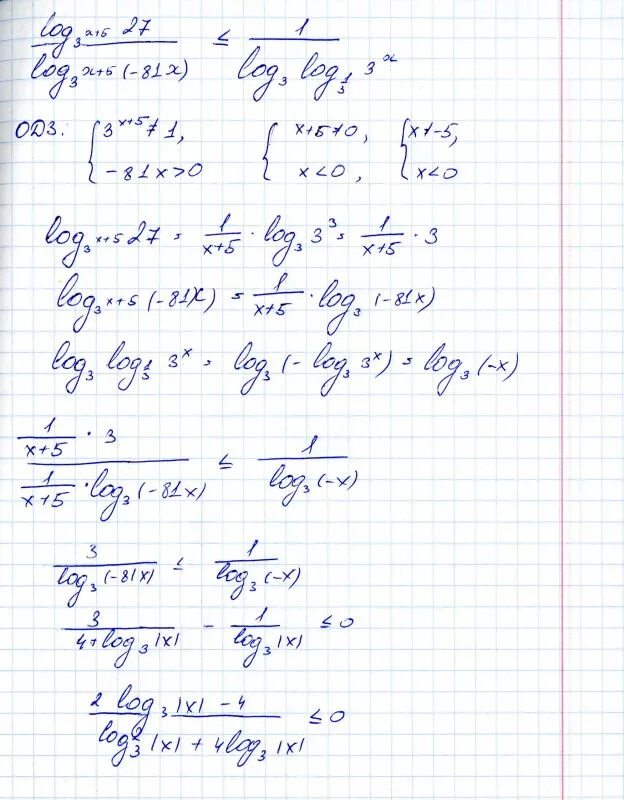 log_{3^{x+5}} 27 / log_{3^{x+5}} (-81x) ≤ 1 / log_3 log_{1/3} 3^x
ОДЗ: { 3^{x+5} ≠ 1, -81x > 0 { x+5 ≠ 0, x < 0, { x ≠ -5, x < 0
log_{3^{x+5}} 27 = 1/(x+5) · log_3 3^3 = 1/(x+5) · 3
log_{3^{x+5}} (-81x) = 1/(x+5) · log_3 (-81x)
log_3 log_{1/3} 3^x = log_3 (-log_3 3^x) = log_3 (-x)
(1/(x+5) · 3) / (1/(x+5) · log_3 (-81x)) ≤ 1 / log_3 (-x)
3 / log_3 (-81x) ≤ 1 / log_3 (-x)
3 / (4 + log_3 |x|) - 1 / log_3 |x| ≤ 0
(2 log_3 |x| - 4) / (log_3^2 |x| + 4 log_3 |x|) ≤ 0